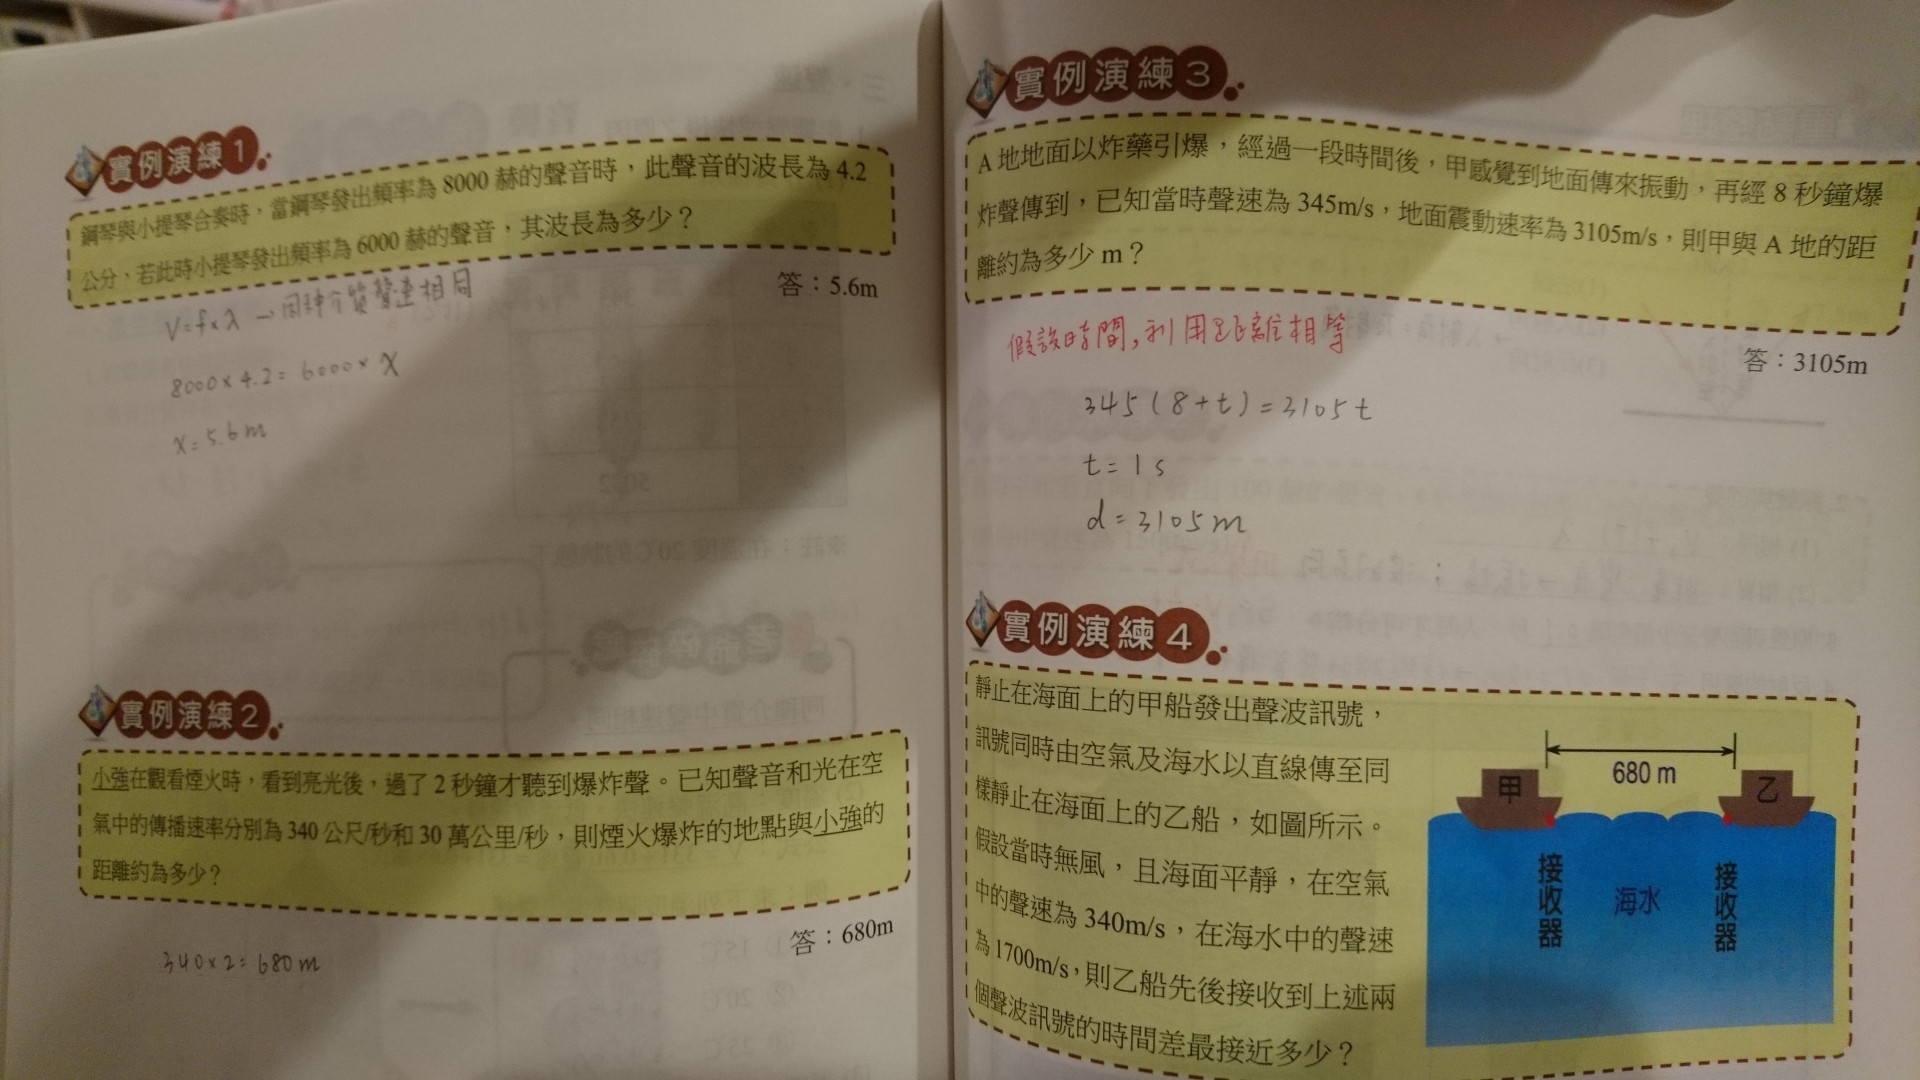 實例演練1
鋼琴與小提琴合奏時，當鋼琴發出頻率為 8000 赫的聲音時，此聲音的波長為 4.2
公分，若此時小提琴發出頻率為 6000 赫的聲音，其波長為多少？
答：5.6m
V=f×λ →同種介質聲速相同
8000×4.2=6000×X
X=5.6m
實例演練2
小強在觀看煙火時，看到亮光後，過了 2 秒鐘才聽到爆炸聲。已知聲音和光在空
氣中的傳播速率分別為 340 公尺/秒和 30 萬公里/秒，則煙火爆炸的地點與小強的
距離約為多少？
答：680m
340×2=680m
實例演練3
A 地地面以炸藥引爆，經過一段時間後，甲感覺到地面傳來振動，再經 8 秒鐘爆
炸聲傳到，已知當時聲速為 345m/s，地面震動速率為 3105m/s，則甲與 A 地的距
離約為多少 m？
假設時間,利用距離相等
答：3105m
345(8+t)=3105t
t=1s
d=3105m
實例演練4
靜止在海面上的甲船發出聲波訊號，
訊號同時由空氣及海水以直線傳至同
樣靜止在海面上的乙船，如圖所示。
假設當時無風，且海面平靜，在空氣
中的聲速為 340m/s，在海水中的聲速
為 1700m/s，則乙船先後接收到上述兩
個聲波訊號的時間差最接近多少？
680 m
甲
乙
接收器
海水
接收器